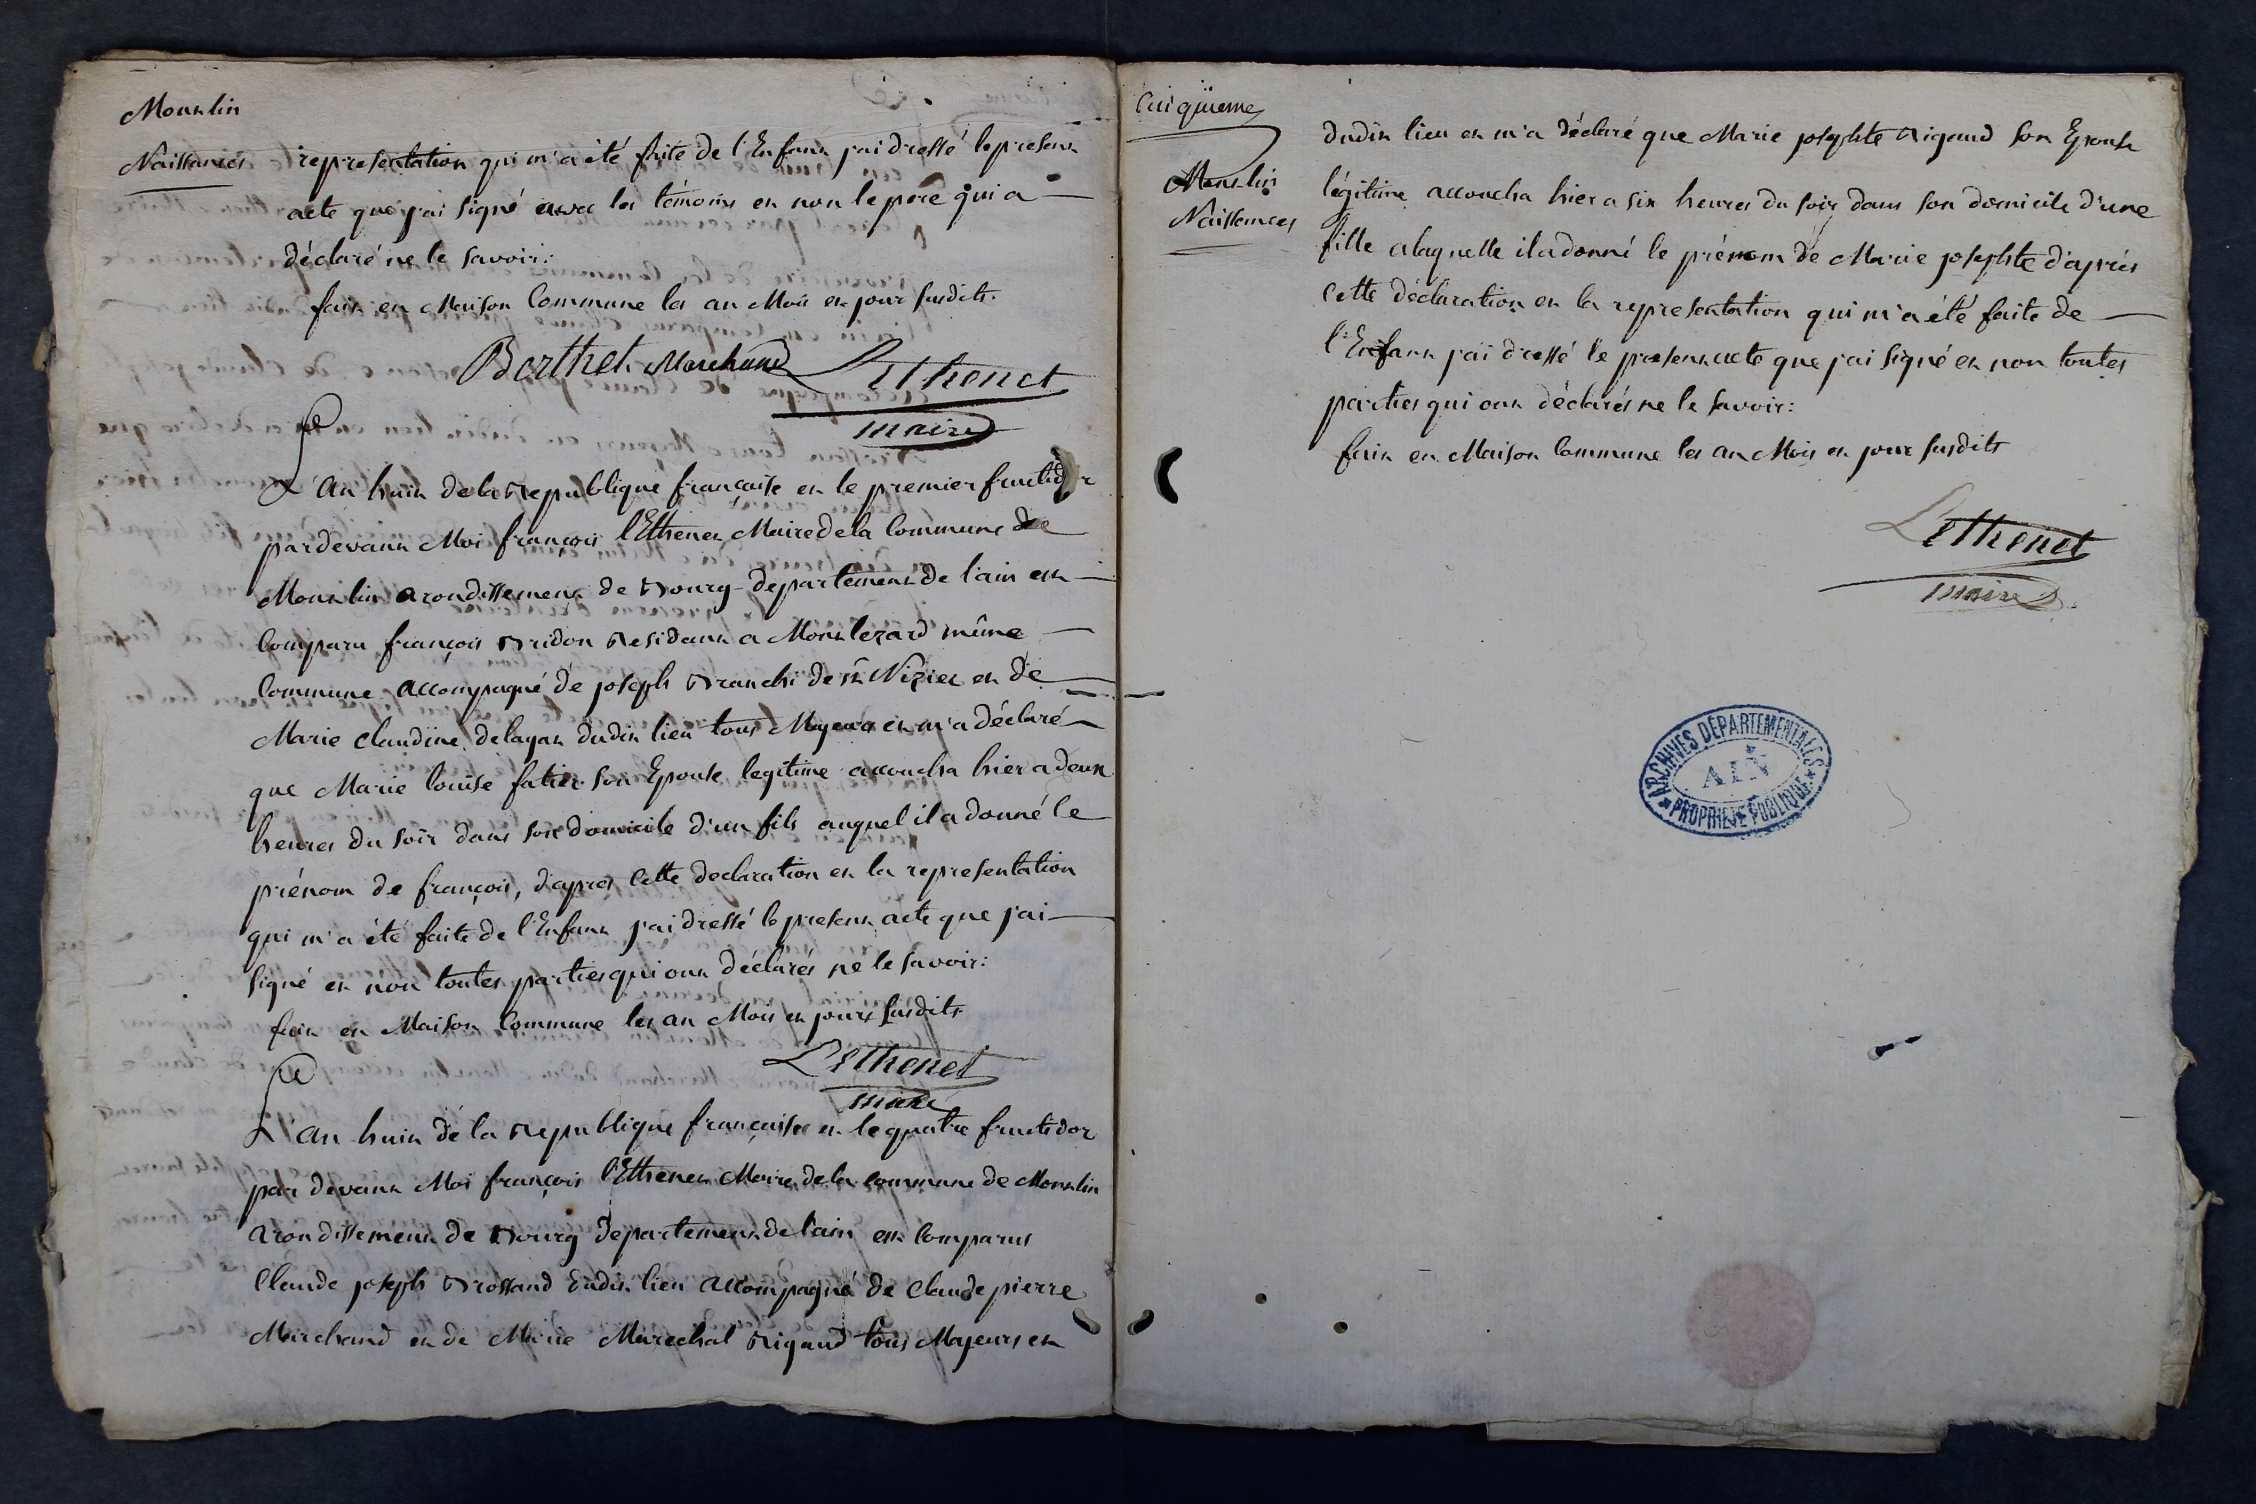 Montlin
Naissances
representation qui m'a été faite de l'Enfant j'ai dressé le present
acte que j'ai signé avec les témoins et non le pere qui a
déclaré ne le savoir:
fait en Maison Commune les an Mois et jour susdits.
Berthet Marchand Lethenet
maire
L'an huit de la Republique française et le premier fructidor
pardevant Moi françois l'Ethenet Maire de la Commune de
Montlin arondissement de Bourg departement de l'ain est
Comparu françois Bridon Residant a Montlezard même
Commune accompagné de joseph Branchi de st Nizier et de
Marie Claudine delayat dudit lieu tous Majeurs et m'a déclaré
que Marie louise fatier son Epouse legitime accoucha hier a deux
heures du soir dans son domicile d'un fils auquel il a donné le
prénom de françois, d'apres Cette declaration et la representation
qui m'a été faite de l'Enfant j'ai dressé le present acte que j'ai
signé et non toutes parties qui ont déclarés ne le savoir:
fait en Maison Commune les an Mois et jours susdits
Lethenet
maire
L'an huit de la Republique française et le quatre fructidor
par devant Moi françois l'Ethenet Maire de la Commune de Montlin
arondissement de Bourg departement de l'ain est Comparus
Claude joseph Brossand dudit lieu accompagné de Claude pierre
Marchand et de Marie Marechal Rigaud tous Majeurs et
Cinquieme
Montlin
Naissances
dudit lieu et m'a déclaré que Marie josephte Rigaud son Epouse
légitime accoucha hier a six heures du soir dans son domicile d'une
fille a laquelle il a donné le prénom de Marie josephte d'après
Cette déclaration et la representation qui m'a été faite de
l'Enfant j'ai dressé le present acte que j'ai signé et non toutes
parties qui ont déclarés ne le savoir:
fait en Maison Commune les an Mois et jour susdits
Lethenet
maire
ARCHIVES DÉPARTEMENTALES
AIN
PROPRIÉTÉ PUBLIQUE